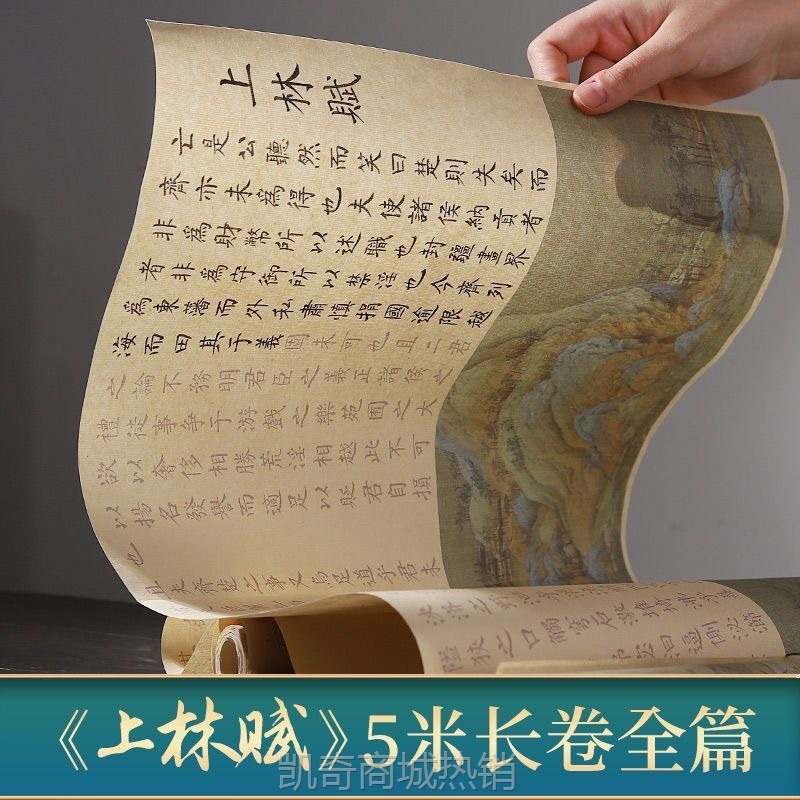 上林賦
亡是公聽然而笑曰楚則失矣而
齊亦未為得也夫使諸侯納貢者
非為財幣所以述職也封疆畫界
者非為守御所以禁淫也今齊列
為東藩而外私肅慎捐國逾限越
海而田其于義固未可也且二君
之論不務明君臣之義正諸侯之
禮徒事爭于游戲之樂苑囿之大
欲以奢侈相勝荒淫相越此不可
以揚名發譽而適足以貶君自損
也
且夫齊楚之事又烏足道乎君未
隘狹之口觸穹石激堆埼沸
《上林赋》5米长卷全篇
凯奇商城热销